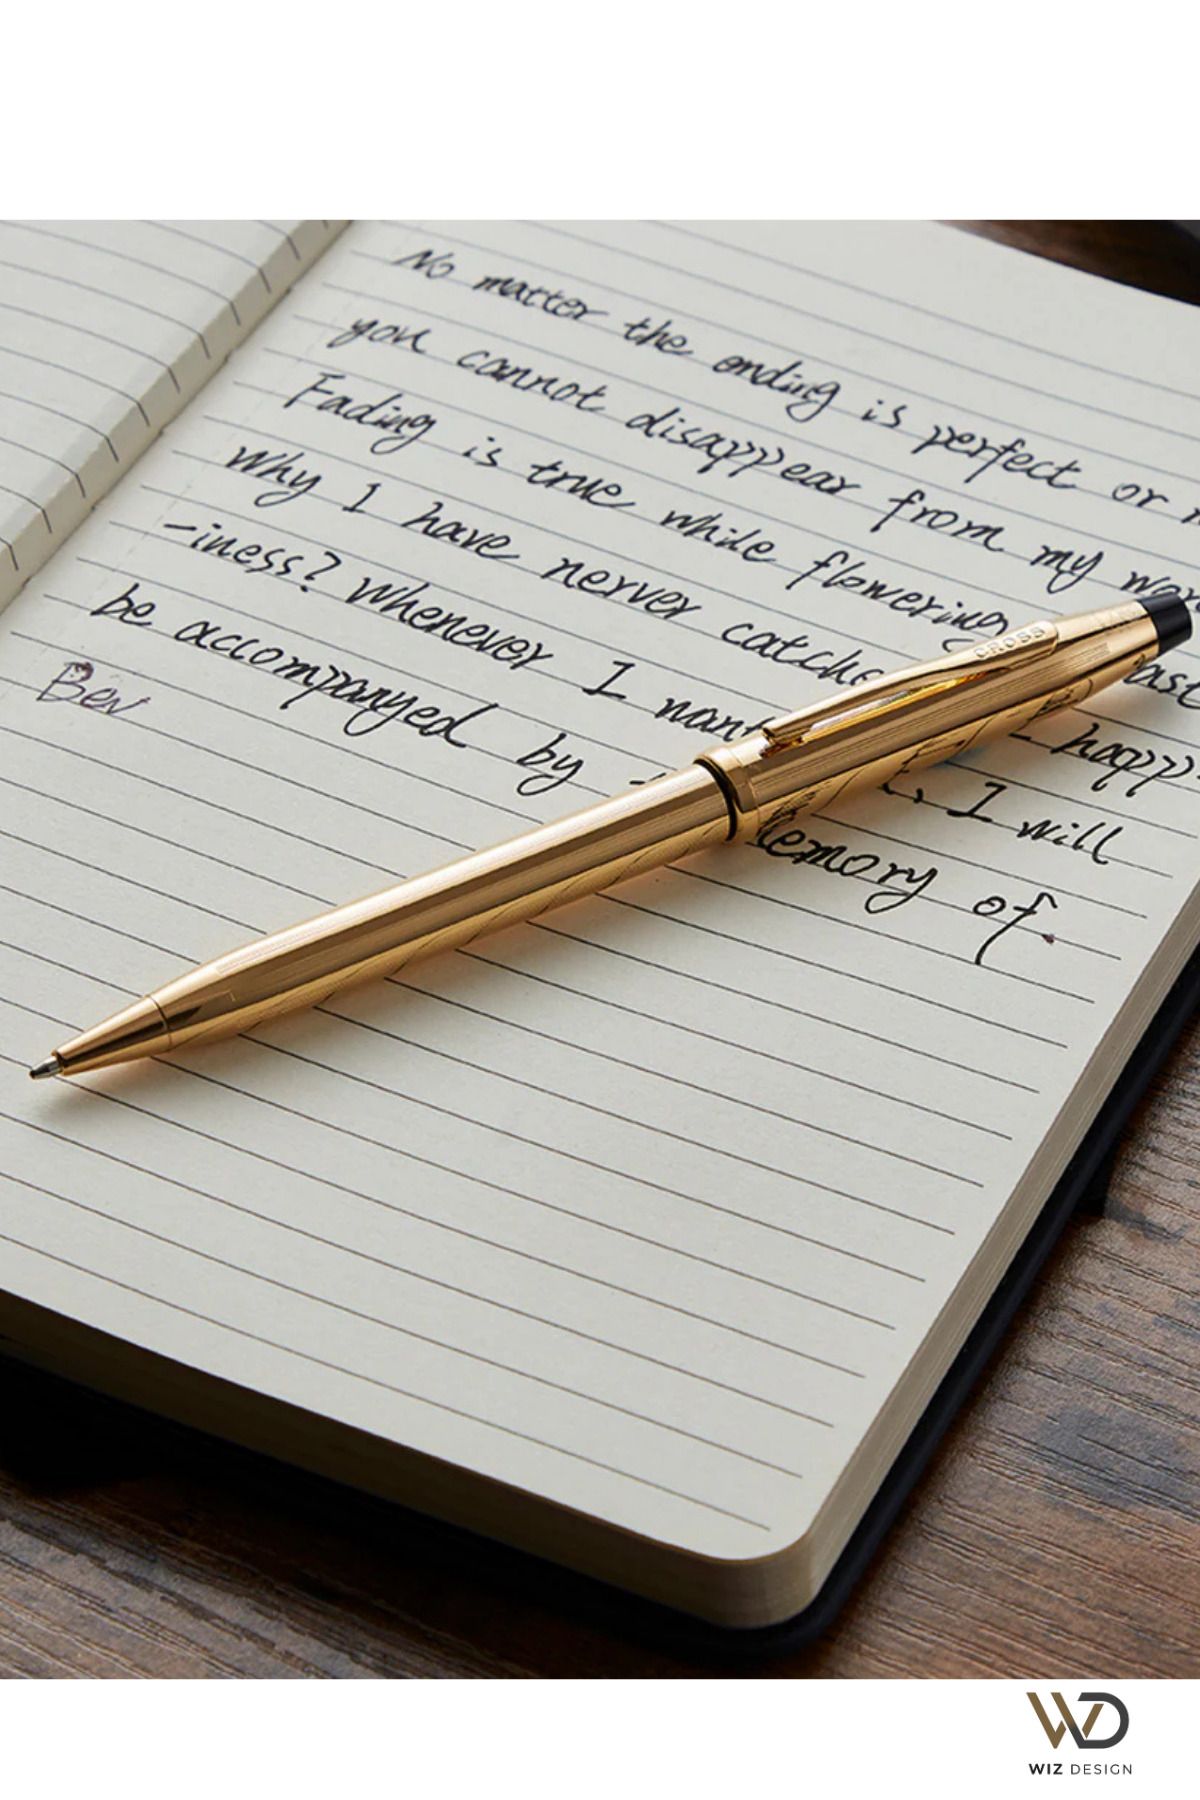 No matter the ending is perfect or
you cannot disappear from my
Fading is true while flowering
Why I have nerver
-iness? Whenever I want happ
be accompanyed by I will
Bev memory of.
CROSS
WD
WIZ DESIGN